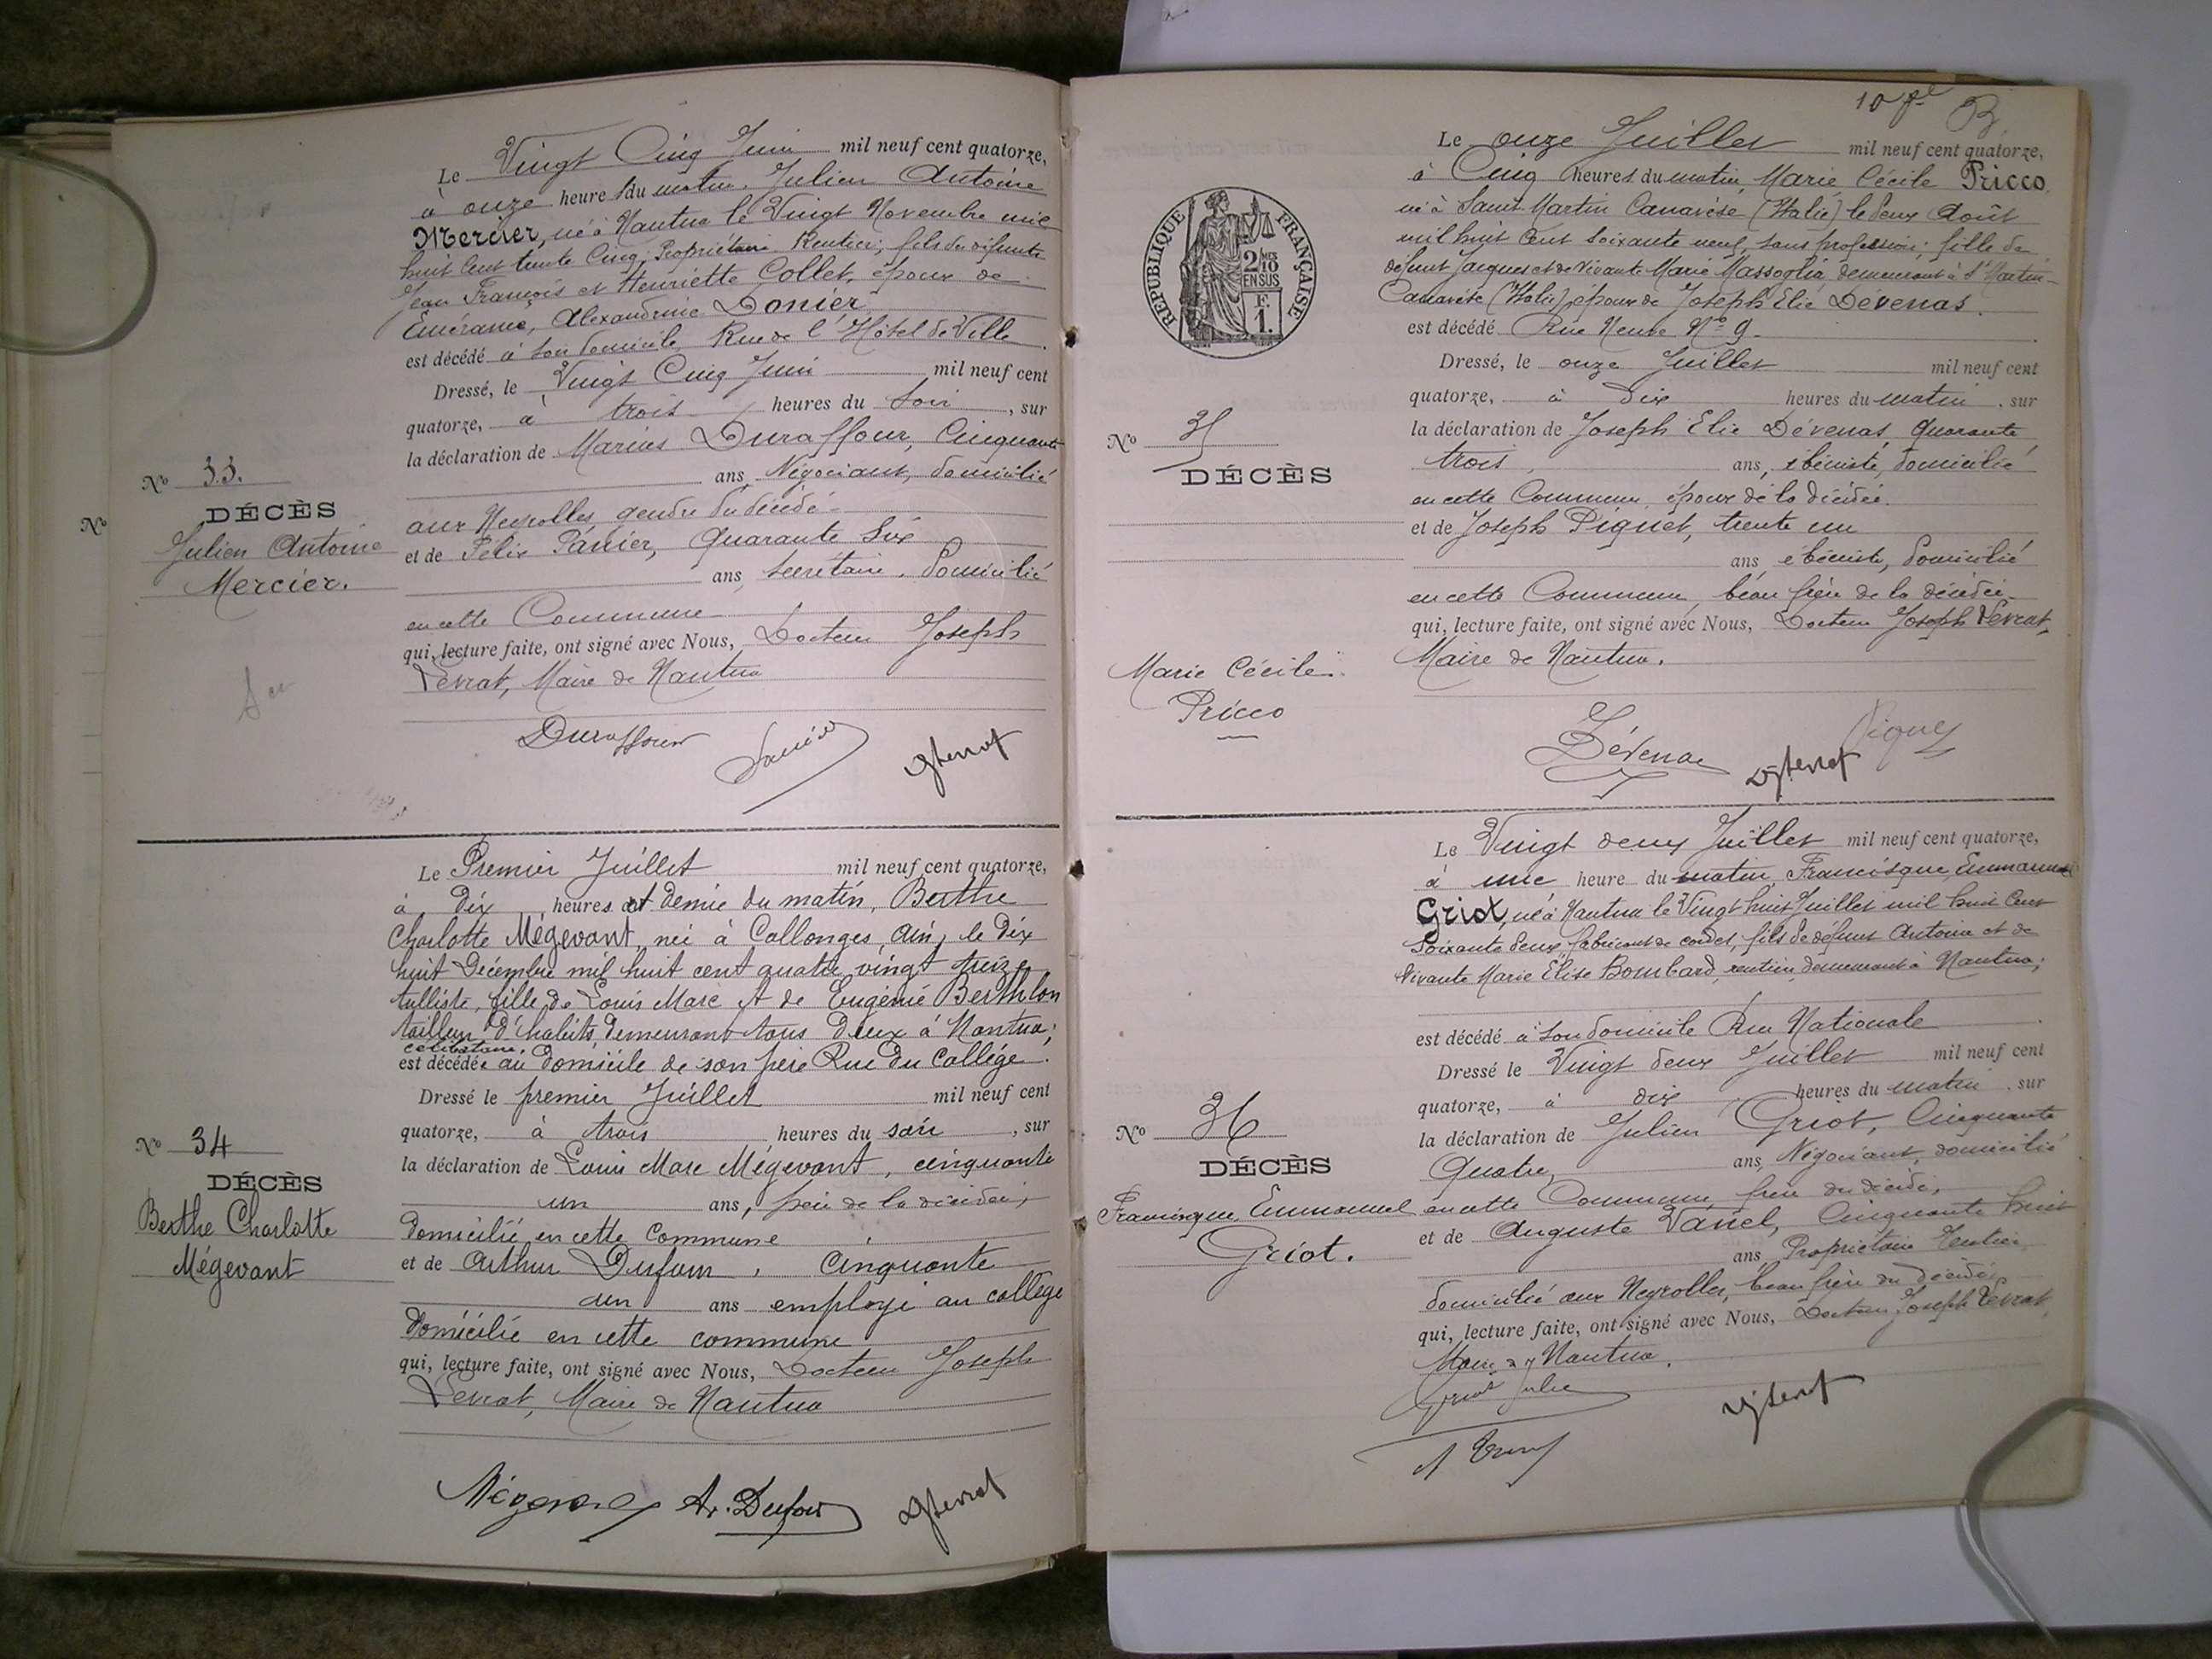 Le Vingt Cinq Juin mil neuf cent quatorze,
à onze heures du matin, Julien Antoine
Mercier, né à Nantua le Vingt Novembre mil
huit cent trente Cinq, Propriétaire Rentier; fils de défunts
Jean François et Henriette Collet, époux de
Emérance, Alexandrine Donier
est décédé à son domicile, Rue de l'Hôtel de Ville.
Dressé, le Vingt Cinq Juin mil neuf cent
quatorze, à trois heures du soir, sur
la déclaration de Marius Duraffour, Cinquante
ans, Négociant, domicilié
aux Neyrolles, gendre du décédé
et de Félix Panier, Quarante Six
ans, secrétaire, domicilié
en cette Commune
qui, lecture faite, ont signé avec Nous, Docteur Joseph
Levrat, Maire de Nantua
Duraffour
Nº 33.
DÉCÈS
Julien Antoine
Mercier.
Nº
Le Premier Juillet mil neuf cent quatorze,
à Dix heures et demie du matin, Berthe
Charlotte Mégevant, née à Collonges, Ain, le Dix
huit Décembre mil huit cent quatre vingt treize
tulliste, fille de Louis Marc et de Eugénie Berthlon
tailleur d'habits, demeurant tous Deux à Nantua;
célibataire,
est décédée au domicile de son père Rue du Collège.
Dressé le premier Juillet mil neuf cent
quatorze, à trois heures du soir, sur
la déclaration de Louis Marc Mégevant, cinquante
un ans, père de la décédée,
domicilié en cette Commune
et de Arthur Dufour, Cinquante
un ans employé au collège
domicilié en cette commune
qui, lecture faite, ont signé avec Nous, Docteur Joseph
Levrat, Maire de Nantua
Ar. Dufour
Nº 34
DÉCÈS
Berthe Charlotte
Mégevant
Le onze Juillet mil neuf cent quatorze,
à Cinq heures du matin, Marie Cécile Pricco
né à Saint Martin Canavèse (Italie) le Deux Août
mil huit Cent Soixante neuf, sans profession; fille de
défunt Jacques et de Vivante Marie Massoglia, demeurant à St Martin
Canavèse (Italie), épouse de Joseph Elie Dévenas.
est décédé Rue Neuve Nº 9.
Dressé, le onze Juillet mil neuf cent
quatorze, à Dix heures du matin, sur
la déclaration de Joseph Elie Dévenas, Quarante
trois, ans, ébéniste, domicilié
en cette Commune, époux de la décédée.
et de Joseph Piquet, trente un
ans ébéniste, domicilié
en cette Commune, beau frère de la décédée.
qui, lecture faite, ont signé avec Nous, Docteur Joseph Levrat,
Maire de Nantua.
Dévenas
Piquet
RÉPUBLIQUE FRANÇAISE
2 10MES
EN SUS
1 F.
Nº 35
DÉCÈS
Marie Cécile
Pricco
Le Vingt deux Juillet mil neuf cent quatorze,
à une heure du matin, Francisque, Emmanuel
Griot, né à Nantua le Vingt huit Juillet mil huit Cent
Soixante deux, fabricant de cardes, fils de défunt Antoine et de
Vivante Marie Elise Bombard, rentière, demeurant à Nantua;
est décédé à son domicile Rue Nationale
Dressé le Vingt deux Juillet mil neuf cent
quatorze, à dix heures du matin, sur
la déclaration de Julien Griot, Cinquante
Quatre, ans, Négociant, domicilié
en cette Commune, frère du décédé,
et de Auguste Vanel, Cinquante huit
ans, Propriétaire Rentier
domicilié aux Neyrolles, beau frère du décédé
qui, lecture faite, ont signé avec Nous, Docteur Joseph Levrat,
Maire de Nantua.
Griot Julien
Nº 36
DÉCÈS
Francisque, Emmanuel
Griot.